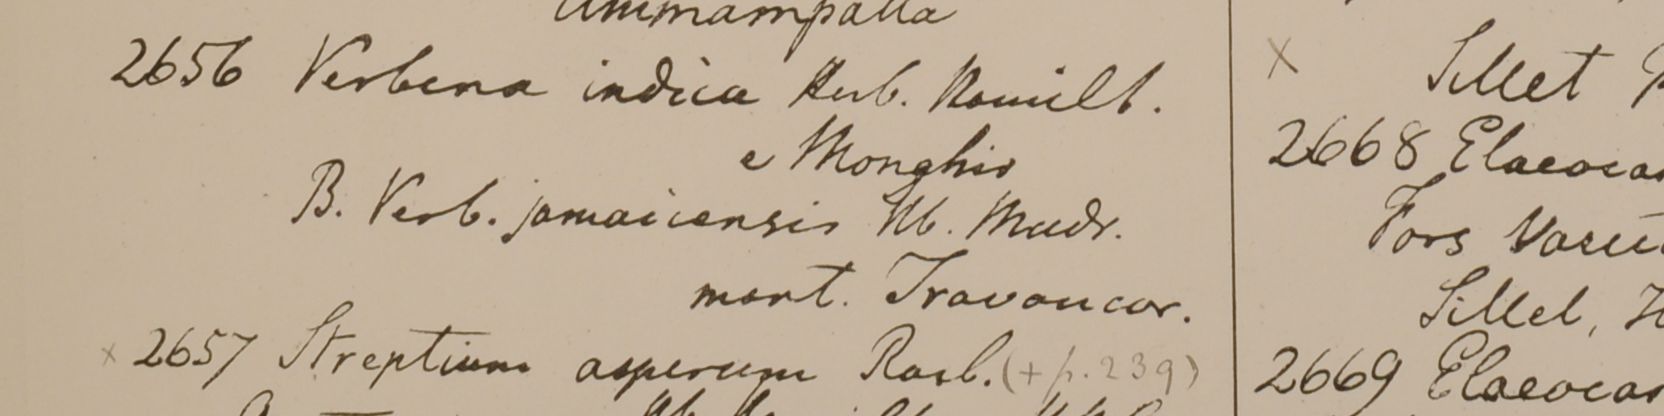 2656 Verbena indica Herb. Hamilt.
e Monghir
B. Verb. jamaicensis Hb. Madr.
mont. Travancor.
x 2657 Streptium asperum Roxb. (+ p. 239)
x Sillet
2668 Elaeocar
Fors
Sillet, H
2669 Elaeocar